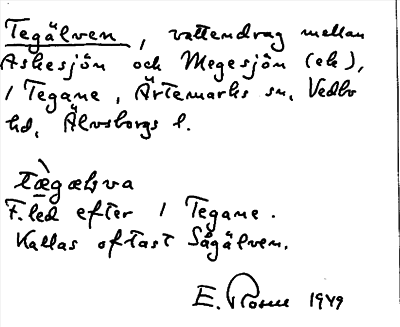 Tegälven, vattendrag mellan
Askesjön och Megesjön (ek),
/ Tegane, Ärtemarks sn, Vedbo
hd, Älvsborgs l.
tæ̀gæḷva
F.led efter / Tegane.
Kallas oftast Sågälven.
E. 1949